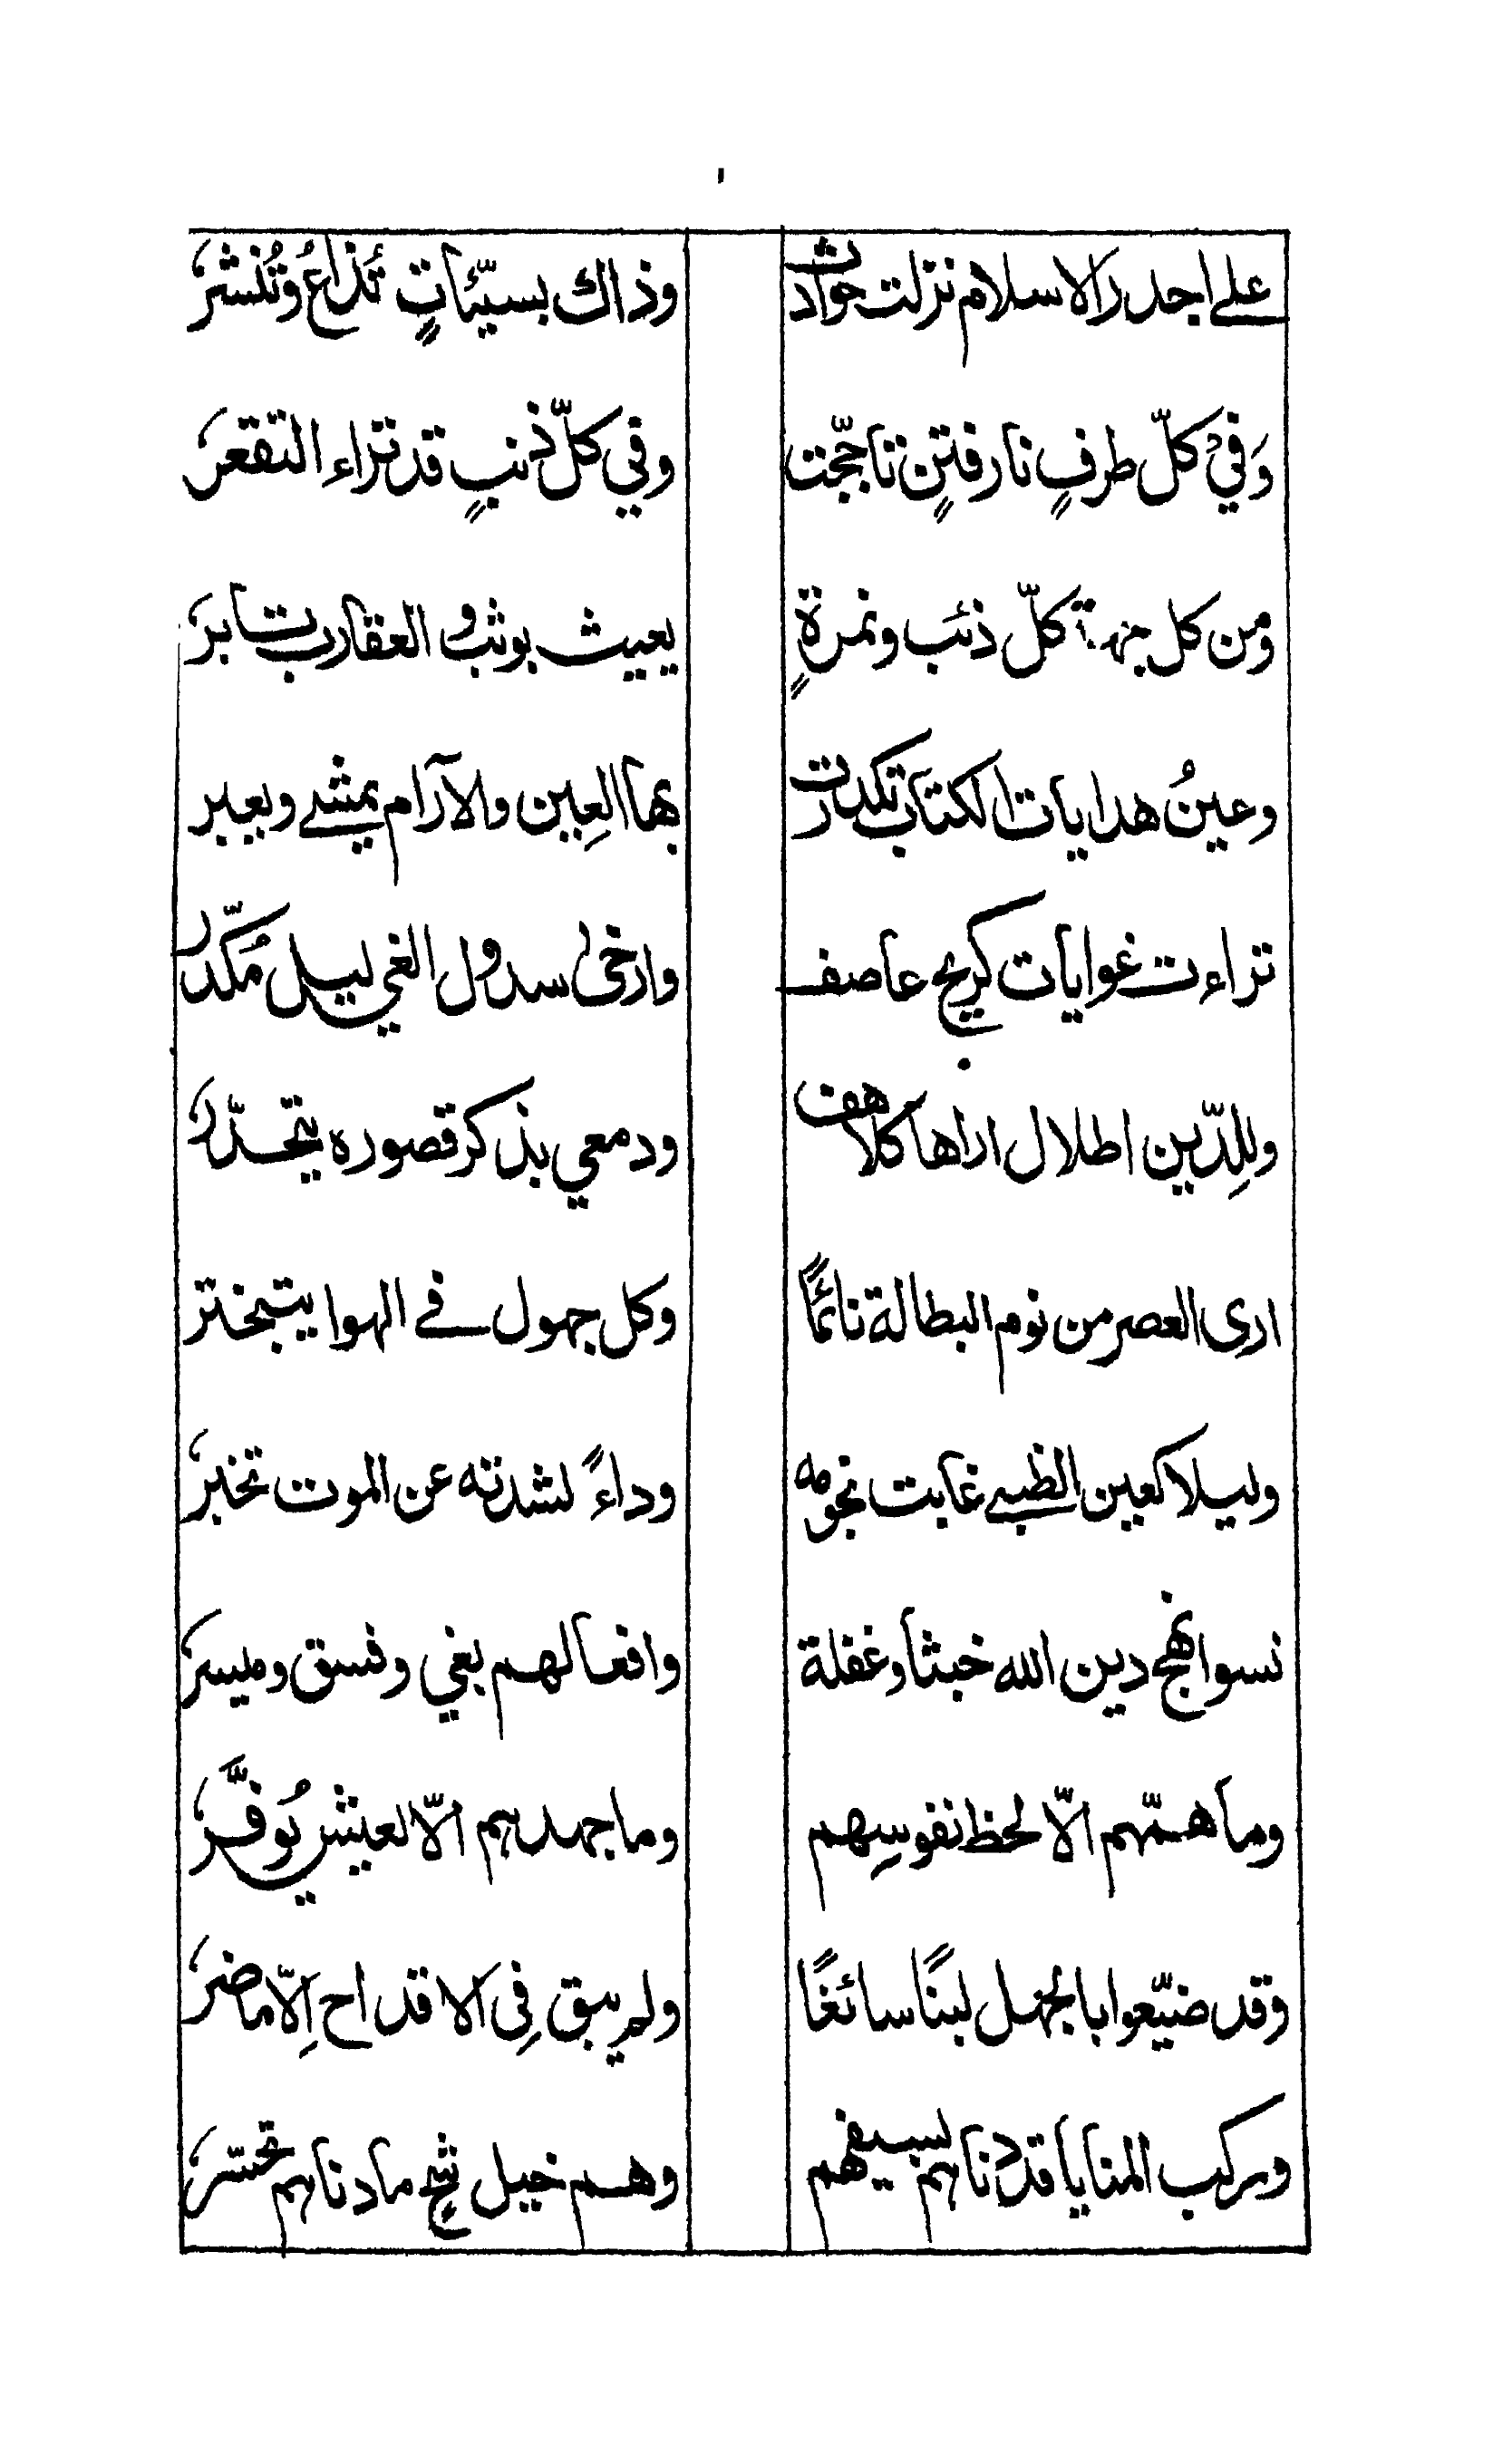 على اجدر الاسلام نزلت حوادث وذاك بسيّئاتٍ تُذاعُ وتُنشرُ
وَفيْ كلّ طرفٍ نار فتنٍ تاجّجت وفي كلّ ذنبٍ قد تراء التقعرُ
ومن كل جهة كلّ ذئب ونمرةٍ يعيث بوثب والعقارب تابرُ
وعينُ هدايات الكتاب تكدرت بها العِين والآرام يمشي ويعبر
تراءت غوايات كريح عاصف وارخى سدول الغي ليل مُكدّر
وللِدّين اطلال اراها كلاهف ودمعي بذكر قصوره يتحدّرُ
ارى العصر من نوم البطالة نائمًا وكل جهول في الهوا يتبختر
وليلا كعين الظبي غابت نجومه وداءً لشدته عن الموت تخبرُ
نسوا نهج دين الله خبثا وغفلة وافعالهم بغي وفسق وميسرُ
وما همّهم الّا لحظ نفوسِهم وما جهدهم الّا لعيش يُوفَّرُ
وقد ضيّعوا بالجهل لبنًا سائغًا ولم يبق فِى الاقداح اِلّا ماضرُ
وركب المنايا قد دناهم بسيفهم وهم خيل شحٍ مادناهم تحسّرُ